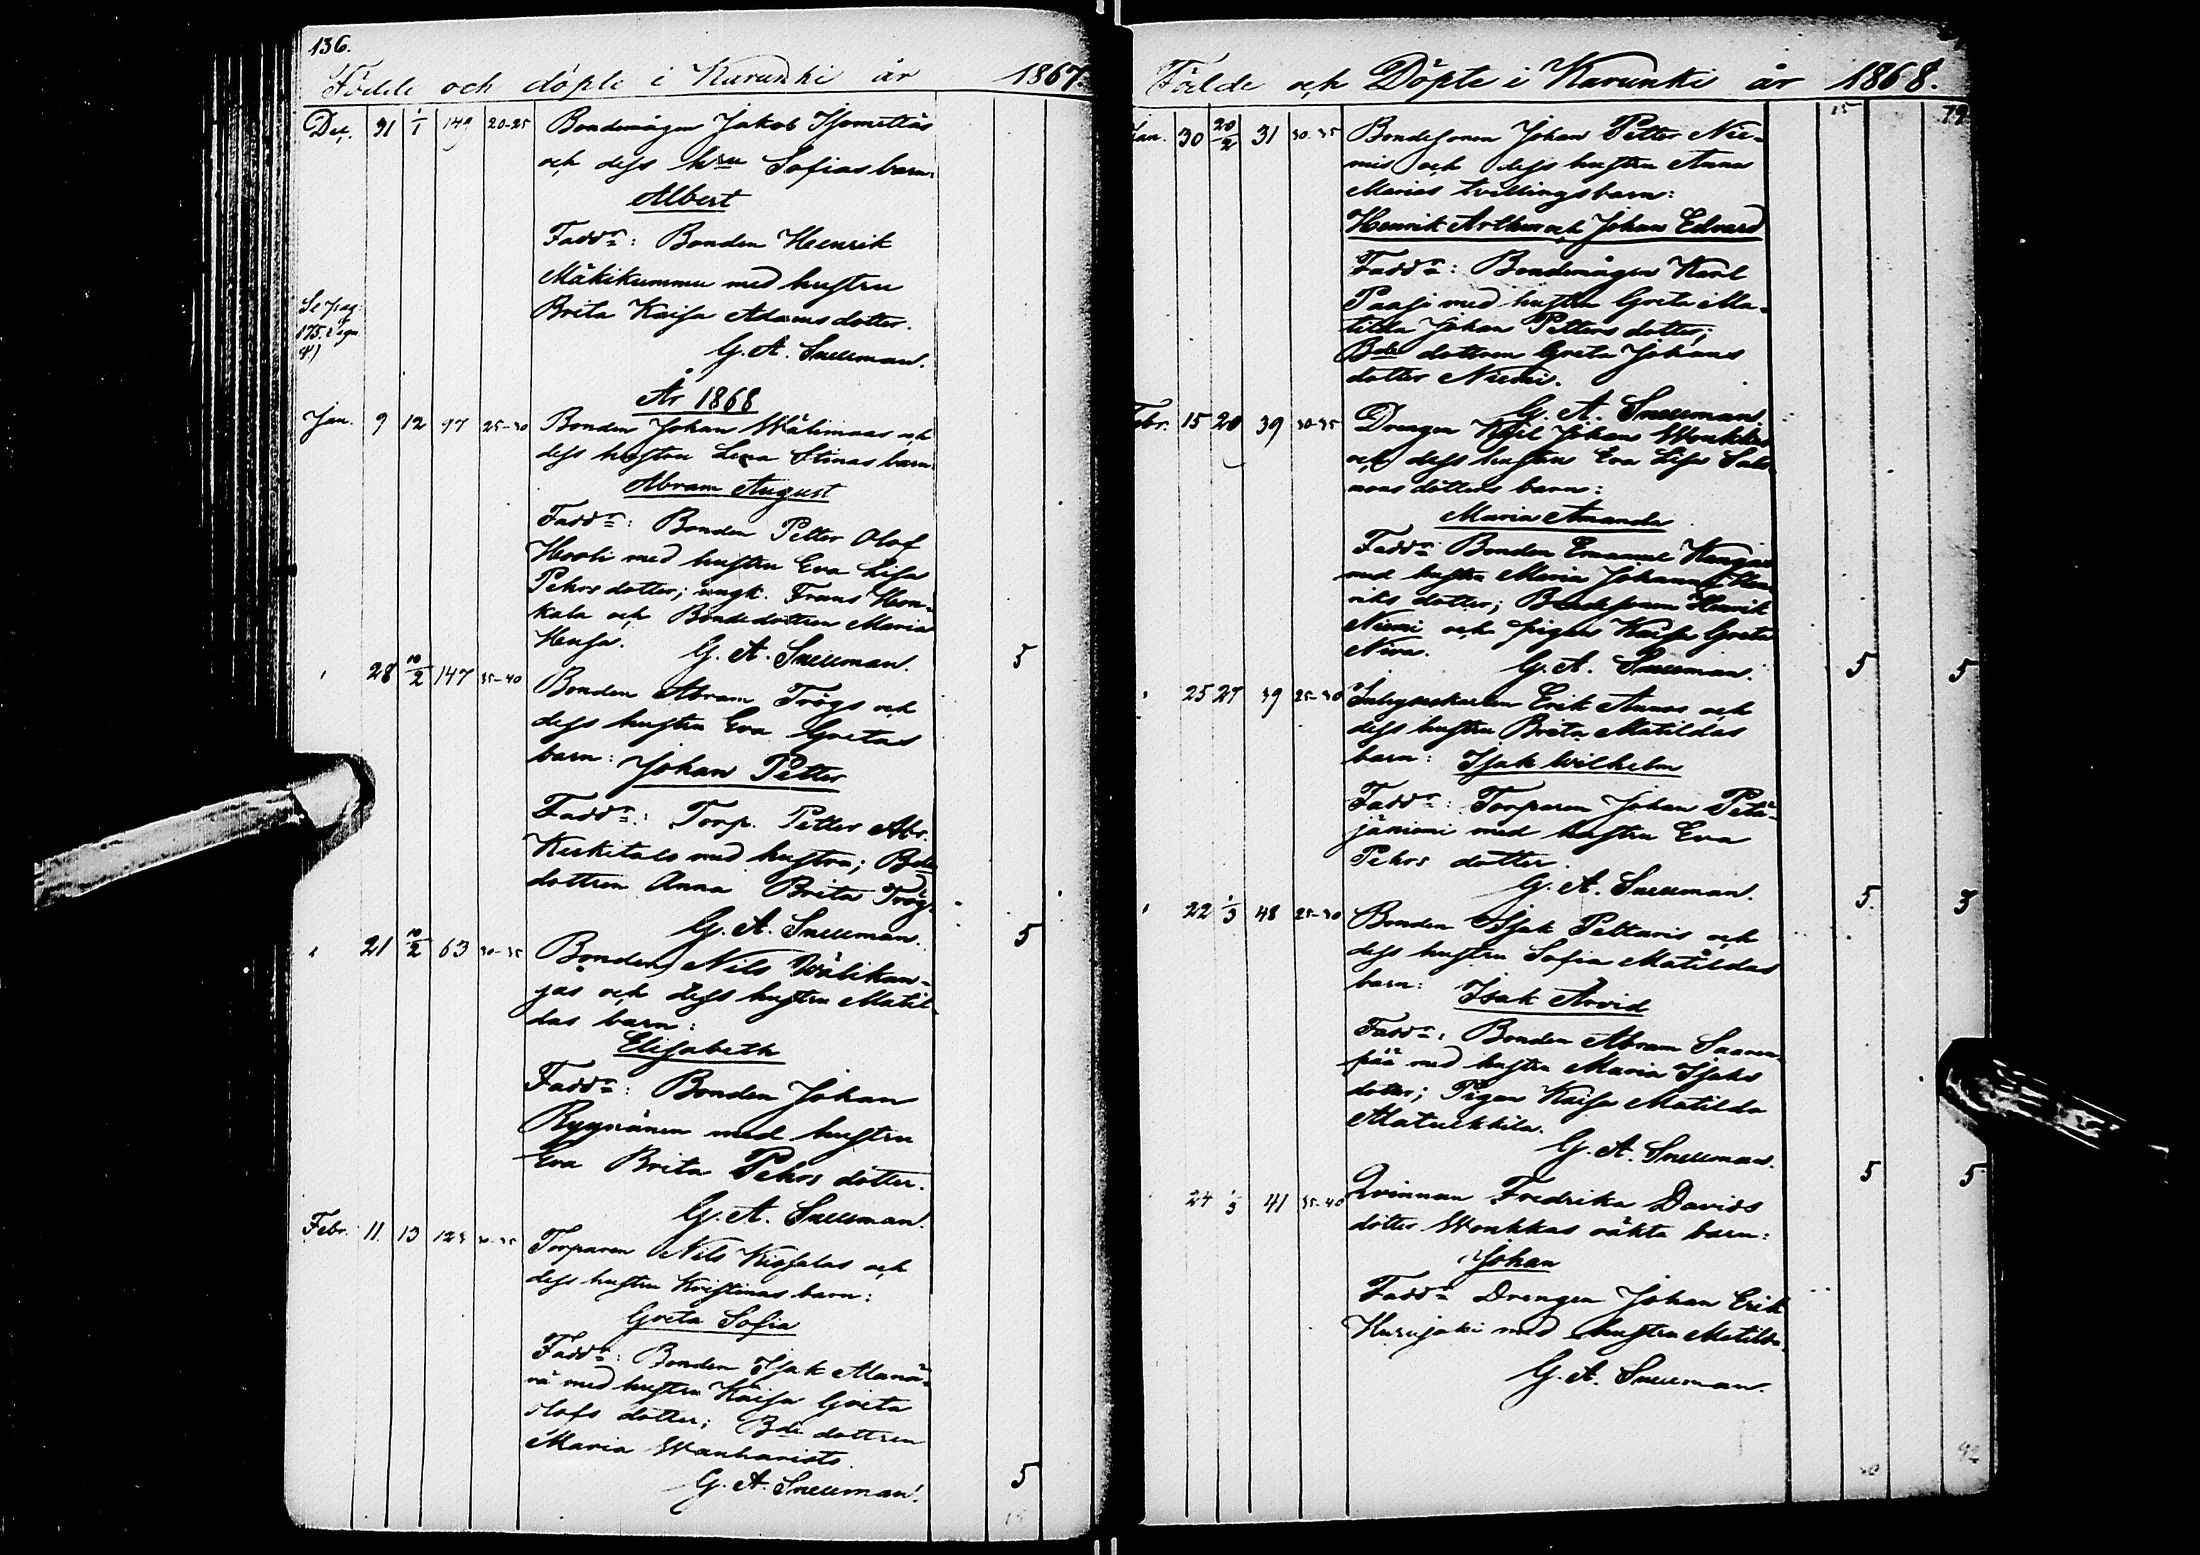 136.
Födde och döpte i Karunki år 1867.
Dec. 31 1/1 149 20-25 Bondemågen Jakob Isomettäs
och dess hru Sofias barn:
Albert
Faddr: Bonden Henrik
Mäkikummu med hustru
Brita Kaisa Adamsdotter.
Se pag.
175.
G. A. Snellman.
År 1868
Jan. 9 12 97 25-30 Bonden Johan Wälimaas och
dess hustru Lena Stinas barn
Abram August
Faddr: Bonden Petter Olof
Hooli med hustru Eva Lisa
Pehrs dotter; ungk. Frans Hon-
kala och Bondedottren Maria
Husa. G. A. Snellman. 5
" 28 10/2 147 35-40 Bonden Abram Frögs och
dess hustru Eva Gretas
barn: Johan Petter
Faddr: Torp. Petter Abr.
Keskitalo med hustru; Bde
dottren Anna Brita Frög.
G. A. Snellman. 5
" 21 10/2 63 30-35 Bonden Nils Wälikan-
jas och dess hustru Matil-
das barn:
Elisabeth
Faddr: Bonden Johan
Ryynänen med hustru
Eva Brita Pehrs dotter.
G. A. Snellman.
Febr. 11. 13 30-35 Torparen Nils Kissalas och
dess hustru Kristinas barn:
Greta Sofia
Faddr: Bonden Isak Alanä-
rä med hustru Kaisa Greta
Olofs dotter; Bde dottren
Maria Wanharisto.
G. A. Snellman. 5
15
Födde och Döpte i Karunki år 1868.
15 79
Jan. 30 20/2 31 30-35 Bondesonen Johan Petter Nie-
mis och dess hustru Anna
Marias tvillingsbarn:
Henrik Arthur och Johan Edvard
Faddr: Bondemågen Karl
Paasi med hustru Greta Ma-
tilda Johan Petters dotter;
Bde dottren Greta Johans
dotter Niemi.
G. A. Snellman.
Febr. 15 20 39 30-35 Drengen Kajl Johan Wonkkas
och dess hustru Eva Lisa Salo-
mons dotters barn:
Maria Amanda
Faddr: Bonden Emanuel Kangas
med hustru Maria Johanna Hen-
riks dotter; Bondesonen Henrik
Niemi och pigan Kaisa Greta
Niva. G. A. Snellman. 5 5
" 25 27 39 25-30 Inhyseskarlen Erik Annas och
dess hustru Brita Matildas
barn: Isak Wilhelm
Faddr: Torparen Johan Petä-
jäniemi med hustru Eva
Pehrs dotter.
G. A. Snellman. 5. 3
" 22 1/3 48 25-30 Bonden Isak Peltaris och
dess hustru Sofia Matildas
barn: Isak Arvid
Faddr: Bonden Abram Saaren-
pää med hustru Maria Isaks
dotter; Pigan Kaisa Matilda
Alatulkkila.
G. A. Snellman. 5 5
24 1/3 41 35-40 Qvinnan Fredrika Davids
dotter Wonkkas oäkta barn:
Johan
Faddr Drengen Johan Erik
Kurujoki med hustru Matilda.
G. A. Snellman.